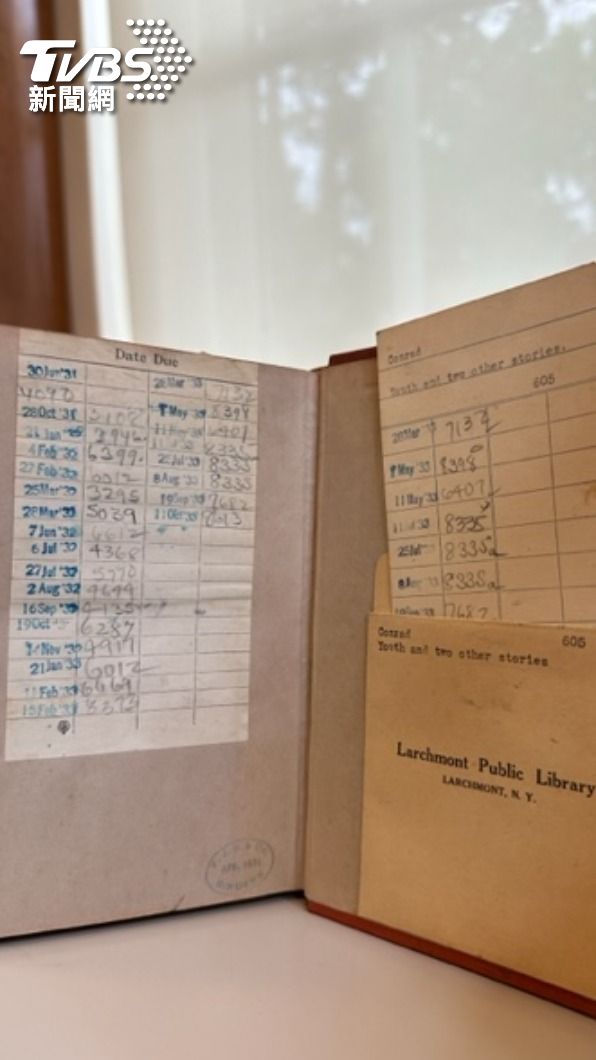 TVBS
新聞網
Date Due
30 Jun '31
4090
28 Oct '31 3102
21 Jan 2946
4 Feb '32 6399
27 Feb '32 6012
25 Mar '32 3295
28 Mar '32 5039
7 Jun '32 6612
6 Jul '32 4368
27 Jul '32 5770
2 Aug '32 9699
16 Sep '32 9135
19 Oct 6287
Nov '32 4917
21 Jan '33 6012
11 Feb '33 6469
15 Feb '33 3392
28 Mar '33 7132
May '33 8398
11 May '33 6407
8335
25 Jul '33 8335
8 Aug '33 8335
19 Sep '33 7682
11 Oct '33
Conrad
Youth and two other stories.
605
28 Mar 7132
May '33 8398
11 May '33 6407
8335
25 Jul 8335a
8335a
7682
Conrad 605
Youth and two other stories
Larchmont Public Library
LARCHMONT, N. Y.